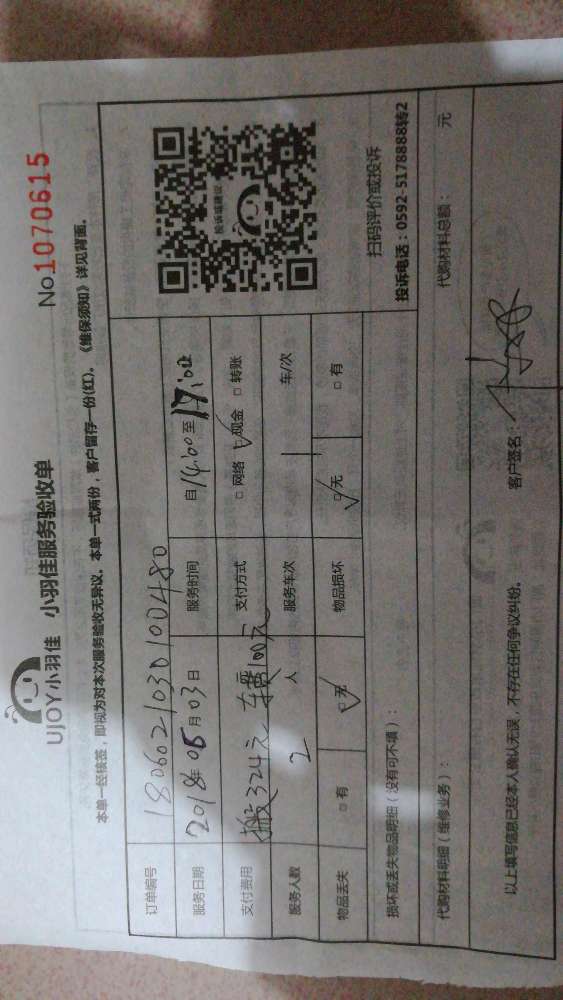 UJOY小羽佳 小羽佳服务验收单
No1070615
本单一经核签，即视为对本次服务验收无异议。本单一式两份，客户留存一份(红)。《维保须知》详见背面。
订单编号 1806021030100480
服务日期 2018年06月03日 服务时间 自14:00至17:00
支付费用 搬324元 车费100元 支付方式 □ 网络 ☑ 现金 □ 转账
服务人数 2 人 服务车次 1 车/次
物品丢失 □ 有 ☑ 无 物品损坏 ☑ 无 □ 有
投诉或建议
扫码评价或投诉
投诉电话：0592-5178888转2
损坏或丢失物品明细（没有可不填）：
代购材料明细（维修业务）： 代购材料总额： 元
以上填写信息已经本人确认无误，不存在任何争议纠纷。 客户签名：